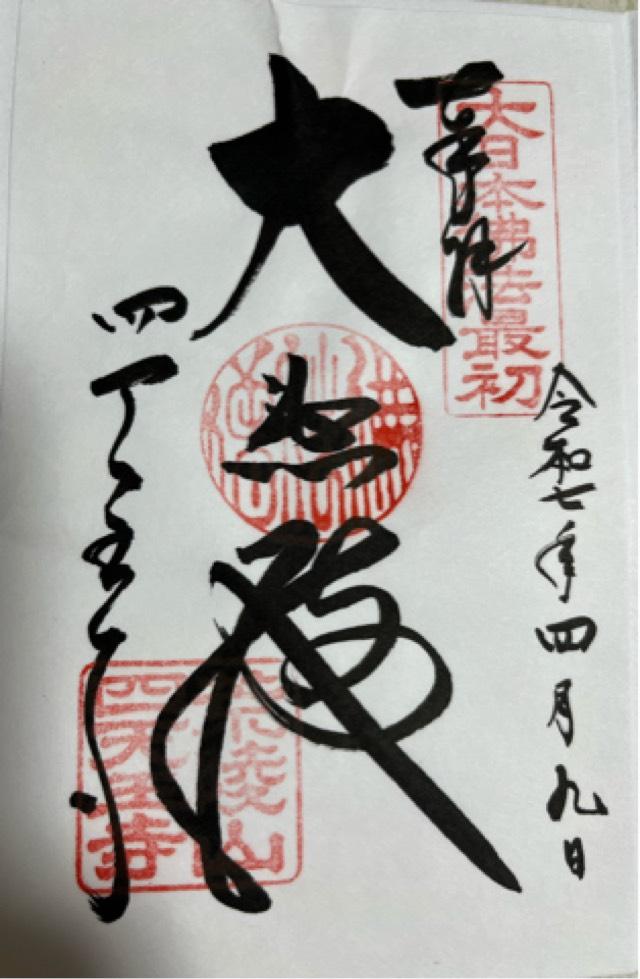 奉拝
大日本佛法最初
令和七年四月九日
大悲殿
四天王寺
荒陵山
四天王寺